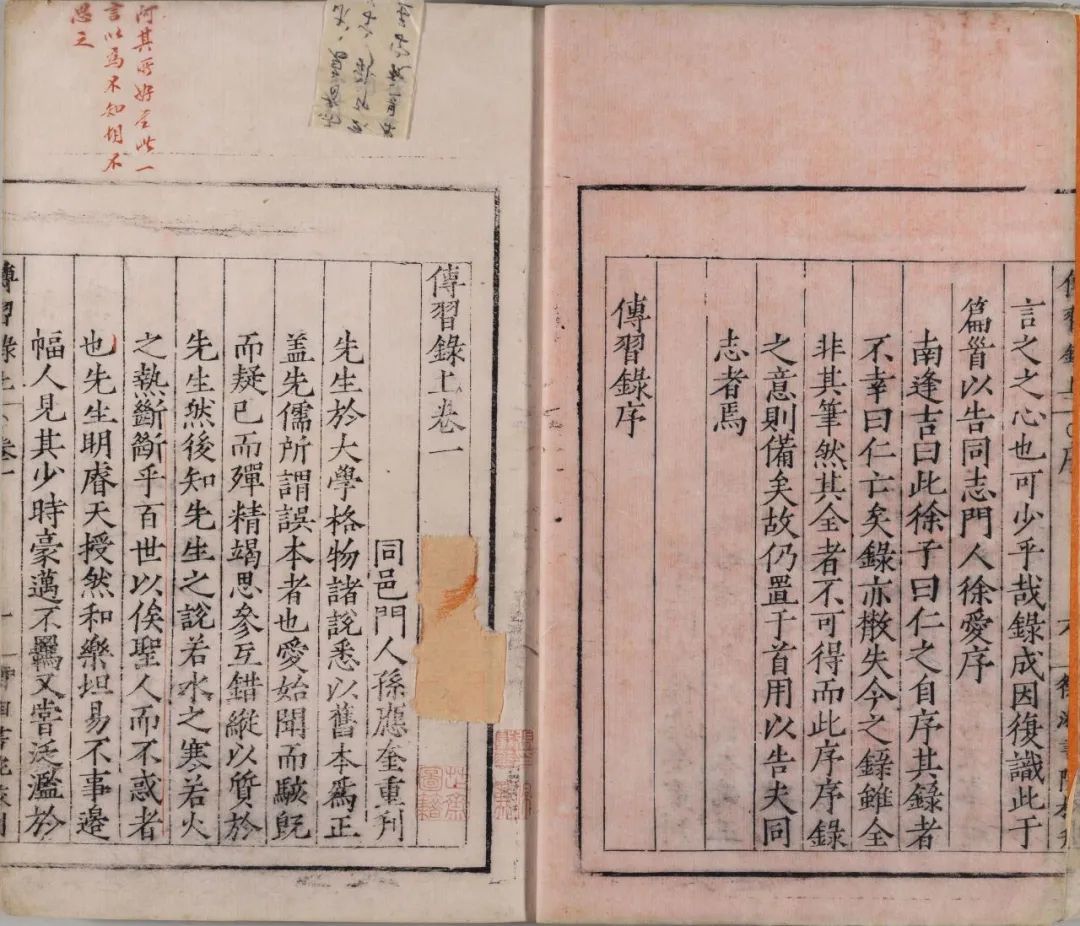 言之之心也可少乎哉錄成因復識此于
篇首以告同志門人徐愛序
南逢吉曰此徐子曰仁之自序其錄者
不幸曰仁亡矣錄亦散失今之錄雖全
非其筆然其全者不可得而此序序錄
之意則備矣故仍置于首用以告夫同
志者焉
傳習錄序
傳習錄上卷一
同邑門人孫應奎重刊
先生於大學格物諸說悉以舊本爲正
盖先儒所謂誤本者也愛始聞而駭旣
而疑已而殫精竭思參互錯縱以質於
先生然後知先生之說若水之寒若火
之熱斷斷乎百世以俟聖人而不惑者
也先生明睿天授然和樂坦易不事邉
幅人見其少時豪邁不羈又嘗泛濫於
傳習錄上
阿其所好至此一
言以爲不知相不
思之
圖籍